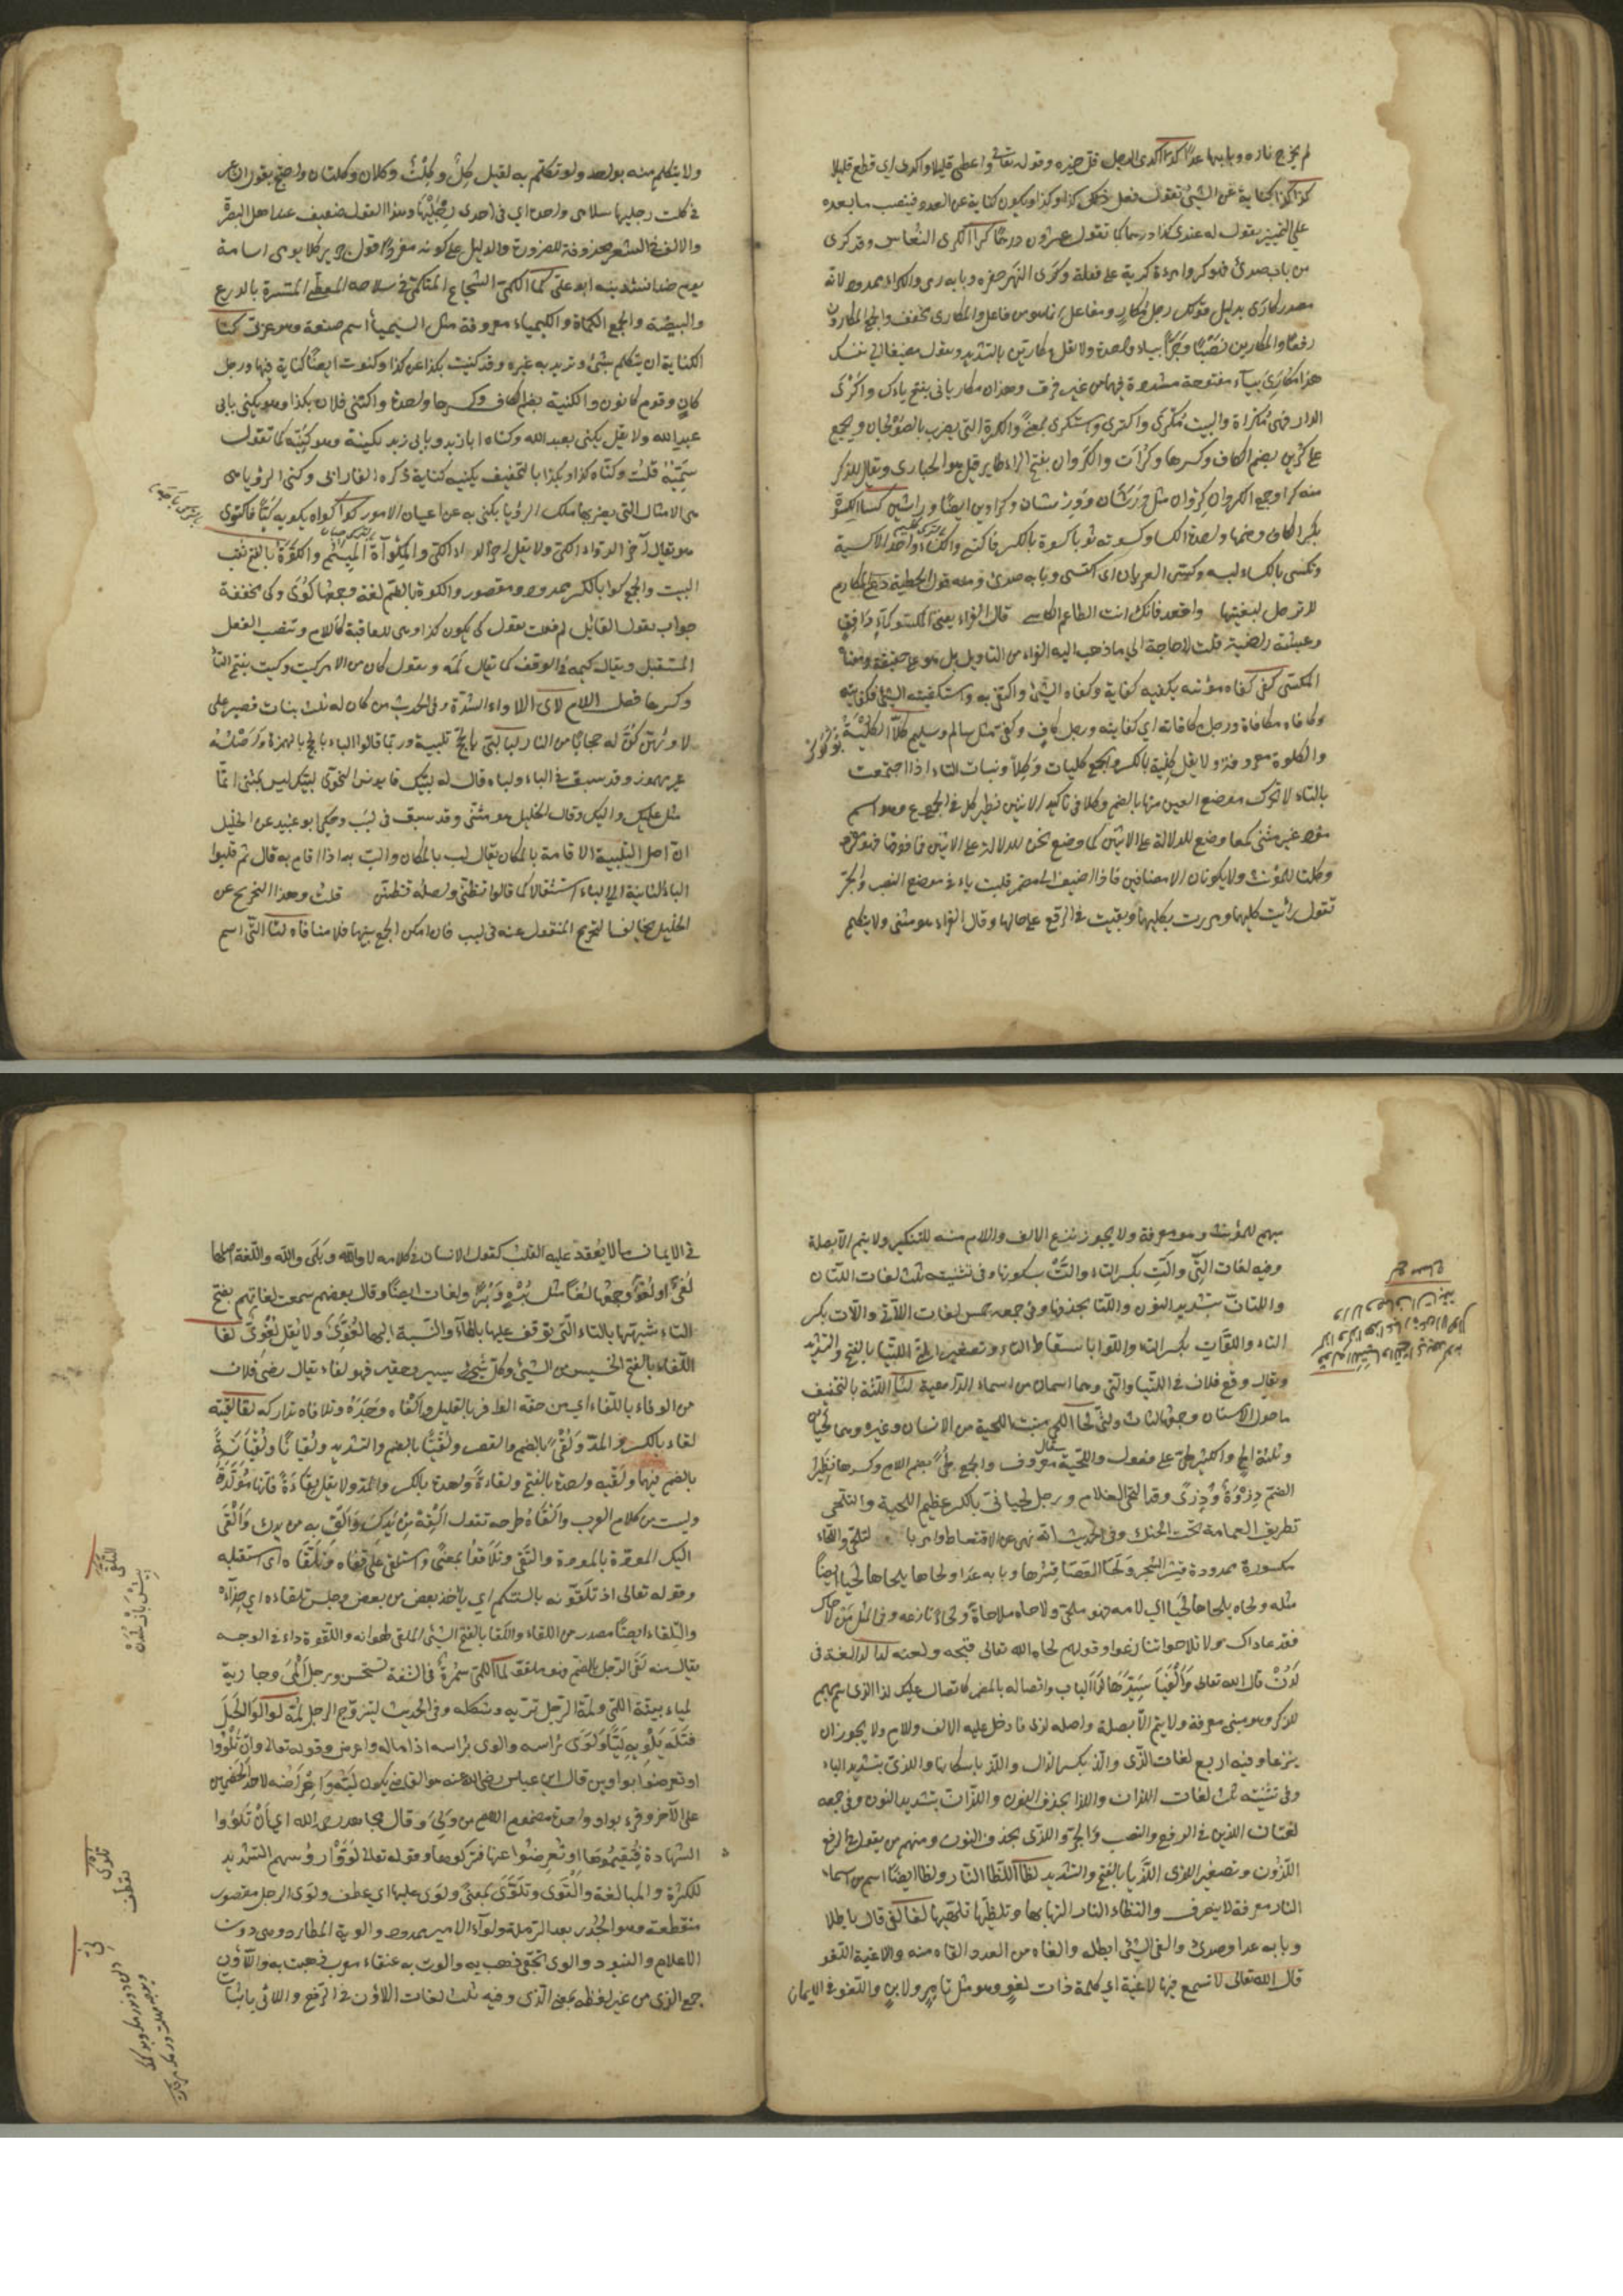 لم يخرج ناره وبابها عدا كدا اكدى الرجل قل خيره وقوله تعالى واعطى قليلا واكدى اي قطع قليلا
كذا كذا كناية عن الشيء تقول فعل كذا وكذا ويكون كناية عن العدد فينصب ما بعده
على التمييز يقول له عندي كذا درهما كما تقول عشرون درهما كرا الكرى النعاس وقد كرى
من باب صدى فهو كر وامرءة كرية على فعلة وكرى النهر حفره وبابه رمى والكراء ممدود لانه
مصدر كارى بدليل قولك رجل مكار ومفاعل انما هو من فاعل والمكارى مخفف والجمع المكارون
رفعا والمكارين نصبا وجرا بياء واحدة ولا تقل المكاريين بالتشديد وتقول مضيفا الى نفسك
هذا مكاري بياء مفتوحة مشددة فيهما من غير فرق وهذان مكارياي بفتح ياءك واكرى
الدار فهي مكراة والبيت مكرى واكترى واستكرى بمعنى والكرة التي يضرب بالصولجان ويجمع
على كرين بضم الكاف وكسرها وكرات والكروان بفتح الراء طاير قيل هو الحبارى ويقال للذكر
منه كرا وجمع الكروان كروان مثل ورشان وورشان وكراوين ايضا وراشين كسا الكسوة
بكسر الكاف وضمها واحدة الكسا وكسوته ثوبا كسوة بالكسر فاكتسى والكساء واحد الاكسية
وتكسى بالكساء لبسه وكسى العريان اي اكتسى وبابه صدى ومنه قول الحطيئة دع المكارم
لا ترحل لبغيتها واقعد فانك انت الطاعم الكاسي قال الفراء يعني المكسو كماء دافق
وعيشة راضية قلت لا حاجة الى ما ذهب اليه الفراء من التأويل بل هو على حقيقة ومعناه
المكتسى كفى كفاه مؤنته يكفيه كفاية وكفاه الشيء واكتفى به واستكفيته الشيء فكفانيه
وكافاه مكافاة ورجل كافاته اي كفايته ورجل كاف وكفي مثل سالم وسليم كلا الكلية
والكلوة معروفة ولا يقل كلية بالكسر والجمع كليات وكلا وبنات التاء اذا اجتمعت
بالتاء لا تحرك موضع العين منها بالضم وكلا في تأكيد الاثنين نظير كل في الجمع وهو اسم
مفرد غير مثنى كمعا وضع للدلالة على الاثنين كما وضع نحن للدلالة على الاثنين فما فوقها فهو مفرد
وكلتا للمؤنث ولا يكونان الا مضافين فاذا اضيف الى مضمر قلبت ياء في موضع النصب والجر
تقول رأيت كليهما ومررت بكليهما وبقيت في الرفع على حالها وقال الفراء هو مثنى ولا يتكلم
ولا يتكلم منه بواحد ولو تكلم به لقيل كل وكلت وكلان وكلتان واحتج بقول الشاعر
في كلت رجليها سلامى واحدة اي في احدى رجليها وهذا القول ضعيف عند اهل البصرة
والالف في الشعر محذوفة للضرورة والدليل على كونه مفردا قول جرير كلا يومى امامة
يوم صد وان لم ناتها الا لماما كما الكمي الشجاع المتكمي في سلاحه المتغطي المتستر بالدرع
والبيضة والجمع الكماة والكيمياء معروفة مثل السيمياء اسم صنعة وهو عربي كنا
الكناية ان يتكلم بشيء وتريد به غيره وقد كنيت بكذا عن كذا وكنوت ايضا كناية فيهما ورجل
كان وقوم كانون والكنية بضم الكاف وكسرها واحدة واكتنى فلان بكذا وهو يكنى بابي
عبد الله ولا يقل يكنى بعبد الله وكناه ابا زيد وبابي زيد تكنية وهو كنيه كما تقول
سميه قلت وكناه كذا وبكذا بالتخفيف يكنيه كناية ذكره الفارابي وكنى الرؤيا هي
هي الامثال التي يضربها ملك الرؤيا يكنى به عن اعيان الامور كوا كواه يكويه كيا فاكتوى
هو يقال آخر الدواء الكي ولا يقل آخر الداء الكي والمكواة الميسم والكوة بالفتح ثقب
البيت والجمع كواء بالكسر ممدود ومقصور والكوة بالضم لغة وجمعها كوى وكي مخففة
جواب لقول القائل لم فعلت يقول كي يكون كذا وهي للعاقبة كاللام وتنصب الفعل
المستقبل ويقال كيمه في الوقف كما يقال لمه ويقول كان من الامر كيت وكيت بفتح التاء
وكسرها فصل اللام لأى اللأواء الشدة وفي الحديث من كان له ثلث بنات فصبر على
لأوائهن كن له حجابا من النار لبا لبى بالحج تلبية وربما قالوا لبأ بالحج بالهمزة واصله
غير مهموز وقد سبق في الباء ولباه قال له لبيك قال يونس النحوي لبيك ليس بمثنى انما
مثل عليك واليك وقال الخليل هو مثنى وقد سبق في لبب وحكى ابو عبيد عن الخليل
ان اصل التلبية الاقامة بالمكان يقال لب بالمكان والب به اذا اقام به قال ثم قلبوا
الباء الثانية الى الياء استثقالا كما قالوا تظنى واصله تظنن قلت وهذا التخريج عن
الخليل يخالف التخريج المنقول عنه في لبب فان امكن الجمع بينهما فلا منافاة لتا التي اسم
مبهم للمؤنث وهو معرفة ولا يجوز نزع الالف واللام منه للتنكير ولا يتم الا بصلة
وفيه لغات التي والت بكسر التاء والت بسكونها وفي تثنيته ثلث لغات اللتان
واللتان بتشديد النون واللتا بحذفها وفي جمعه خمس لغات اللاتي واللات بكسر
التاء واللواتي واللوات بكسر التاء واللوا باسقاط التاء وتصغير التي اللتيا بالفتح والتشديد
ويقال وقع فلان في اللتيا والتي وهما اسمان من اسماء الداهية لثا اللثة بالتخفيف
ما حول الاسنان وجمعها لثاث ولثى لحا اللحي منبت اللحية من الانسان وغيره وهما لحيان
وثلثة الح والكثير لحي على فعول واللحية معروف والجمع لحى بضم اللام وكسرها نظير
الضم ذروة وذرى وقد التحى الغلام ورجل لحياني بالكسر عظيم اللحية والتلحي
تطويق العمامة تحت الحنك وفي الحديث انه نهى عن الاقتعاط وامر بالتلحي واللحاء
مكسورة ممدودة قشر الشجر ولحا العصا قشرها وبابه عدا ولحاها يلحاها لحيا ايضا
مثله ولحاه يلحاه لحيا اي لامه فهو ملحي ولاحاه ملاحاة ولحاء نازعه وفي المثل من لاحاك
فقد عاداك وتلاحوا تنازعوا وقولهم لحاه الله تعالى قبحه ولعنه لدا لدا لغة في
لدن قال الله تعالى والفيا سيدها لدا الباب واتصاله بالمضمر كاتصال عليك لذا الذي اسم مبهم
للذكر وهو مبني معرفة ولا يتم الا بصلة واصله لذي فادخل عليه الالف واللام ولا يجوز ان
ينزعا وفيه اربع لغات الذي والذ بكسر الذال والذ باسكانها والذي بتشديد الياء
وفي تثنيته ثلث لغات اللذان واللذا بحذف النون واللذان بتشديد النون وفي جمعه
لغتان الذين في الرفع والنصب والجر والذي بحذف النون ومنهم من يقول في الرفع
اللذون وتصغير الذي اللذيا بالفتح والتشديد لظا اللظا النار ولظا ايضا اسم من اسماء
النار معرفة لا ينصرف والتظاء النار التهابها وتلظيها تلهبها لغا لغى قال باطلا
وبابه عدا وصدى والغى الشيء ابطله والغاه من العدد القاه منه واللاغية اللغو
قال الله تعالى لا تسمع فيها لاغية اي كلمة ذات لغو وهو مثل تامر ولابن واللغو في الايمان
في الايمان ما لا يعقد عليه القلب كقول الانسان في كلامه لا والله وبلى والله واللغة اصلها
لغى او لغو وجمعها لغا مثل برة وبرى ولغات ايضا وقال بعضهم سمعت لغاتهم بفتح
التاء شبهها بالتاء التي يوقف عليها بالهاء والنسبة اليها لغوي ولا يقل لغوي لفا
اللفاء بالفتح الخسيس من الشيء وكل شيء يسير حقير فهو لفاء يقال رضي فلان
من الوفاء باللفاء اي من حقه الوافر بالقليل والفاه وجده وتلافاه تداركه لقا لقيه
لقاء بالكسر والمد ولقى بالضم والقصر ولقيا بالضم والتشديد ولقيانا ولقيانة
بالضم فيهما ولقيه واحدة بالفتح ولقاءة واحدة بالكسر والمد ولا يقل لقاة فانها مولدة
وليست من كلام العرب والقاه طرحه تقول القه من يدك والق به من يدك والقى
اليك المودة بالمودة والتقى وتلاقوا بمعنى واستلقى على قفاه وتلقاه اي استقبله
وقوله تعالى اذ تلقونه بالسنتكم اي يأخذ بعض من بعض وجلس تلقاءه اي حذاءه
والتلقاء ايضا مصدر من اللقاء واللقا بالفتح الشيء الملقى لهوانه واللقوة داء في الوجه
يقال منه لقي الرجل بالضم فهو ملقو لما اللمى سمرة في الشفة تستحسن ورجل المى وجارية
لمياء بينة اللمى ولمة الرجل تربه وشكله وفي الحديث ليتزوج الرجل لمته لوا لوى الحبل
فتله يلويه ليا ولوى رأسه والوى برأسه اذا اماله واعرض وقوله تعالى وان تلووا
او تعرضوا بواوين قال ابن عباس رضي الله عنه هو القاضي يكون ليته واعراضه لاحد الخصمين
على الآخر وقرء بواو واحدة مضموم اللام من ولي وقال مجاهد رحمه الله اي ان تلووا
الشهادة فتقيموها او تعرضوا عنها فتتركوها وقوله تعالى لووا رؤسهم التشديد
للكثرة والمبالغة والتوى وتلوى بمعنى ولوى عليه اي عطف ولوى الرمل مقصور
منقطعه وهو الجدد بعد الرملة ولواء الامير ممدود والوية المطارد وهي دون
الاعلام والبنود والوى بحقي ذهب به والوت به عنقاء مغرب ذهبت به واللاؤن
جمع الذي من غير لفظه بمعنى الذين وفيه ثلث لغات اللاؤن في الرفع واللائي باثبات